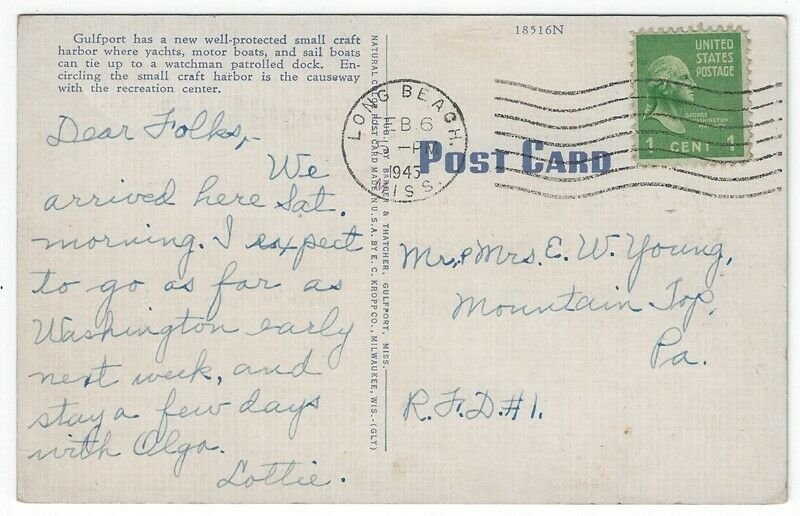 Gulfport has a new well-protected small craft
harbor where yachts, motor boats, and sail boats
can tie up to a watchman patrolled dock. En-
circling the small craft harbor is the causeway
with the recreation center.
Dear Folks,-
We
arrived here Sat.
morning. I expect
to go as far as
Washington early
next week, and
stay a few days
with Olga.
Lottie.
NATURAL COLOR POST CARD MADE IN U.S.A. BY E. C. KROPP CO., MILWAUKEE, WIS.-(GLY)
PUB. BY BARBER & THATCHER, GULFPORT, MISS.
18516N
LONG BEACH,
FEB 6
-PM
1945
MISS.
POST CARD
UNITED
STATES
POSTAGE
GEORGE
WASHINGTON
1 CENT 1
Mr. & Mrs. E. W. Young,
Mountain Top,
Pa.
R.F.D. #1.